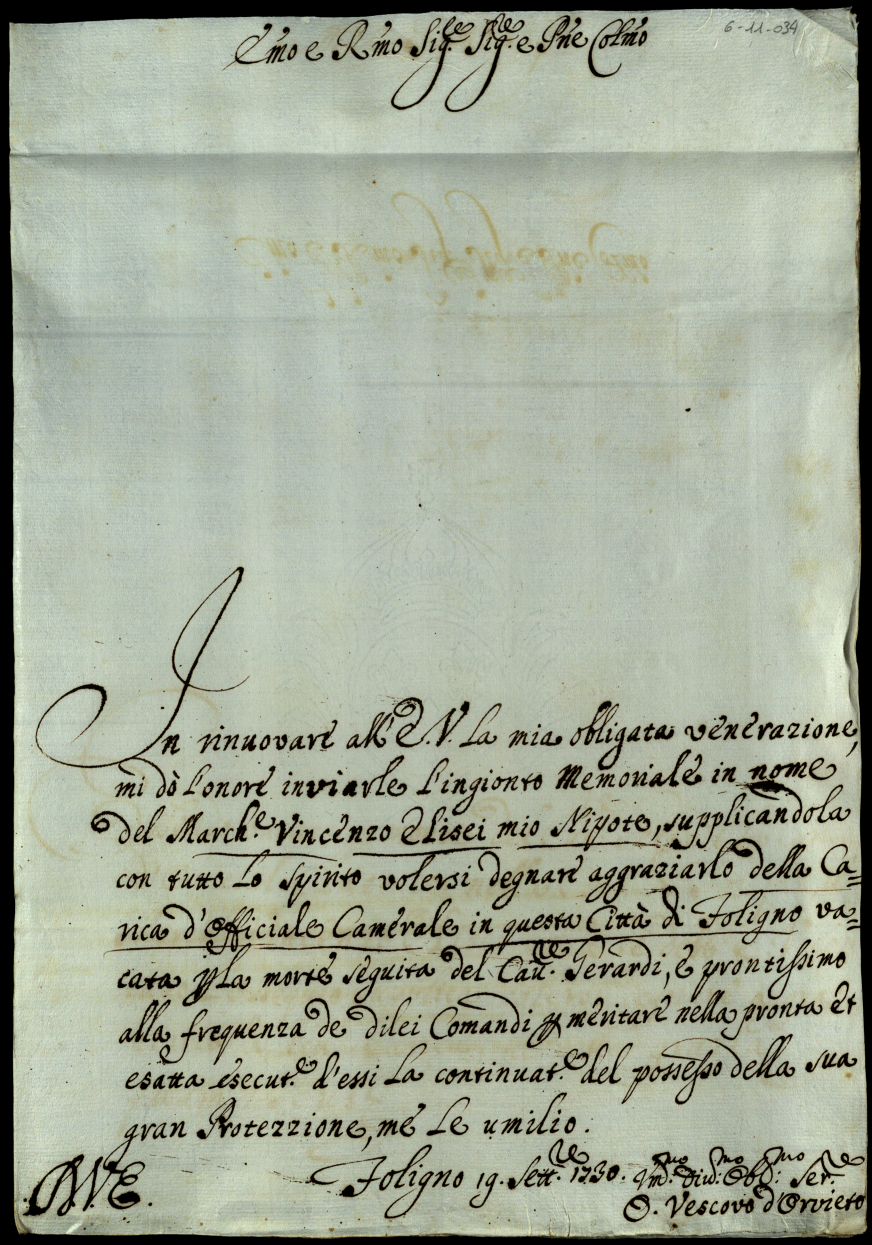 6-11-034
Emo e Rmo Sig.re Sig.re e Pne Colmo
In rinuovare all'E.V. La mia obligata venerazione,
mi dò l'onore inviarle l'ingionto Memoriale in nome
del March.e Vincenzo Elisei mio Nipote, supplicandola
con tutto lo spirito volersi degnare aggraziarlo della Ca=
rica d'Officiale Camerale in questa Città di Foligno va=
cata p La morte seguita del Cau.re Gerardi, e prontissimo
alla frequenza de dilei Comandi p meritare nella pronta et
esatta esecut.e d'essi La continuat.e del possesso della sua
gran Protezzione, me Le umilio.
Foligno 19. Sett.re 1730. Um.mo Diu.mo Obb.mo Ser.re
O. Vescovo d'Orvieto